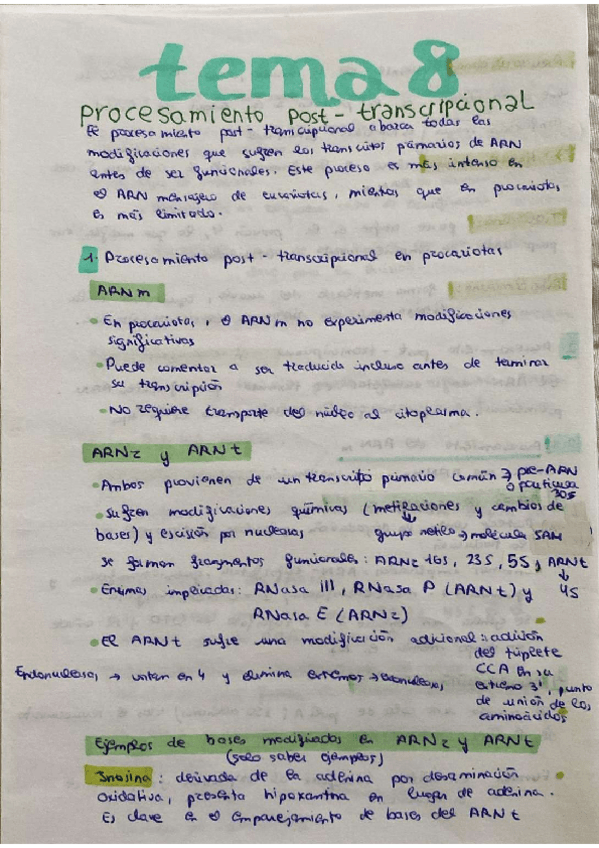 tema 8
Procesamiento post-transcripcional
El procesamiento post-transcripcional abarca todas las
modificaciones que sufren los transcritos primarios de ARN
antes de ser funcionales. Este proceso es más intenso en
el ARN mensajero de eucariotas, mientras que en procariotas,
es más limitado.
1. Procesamiento post-transcripcional en procariotas
ARNm
• En procariotas, el ARNm no experimenta modificaciones
significativas
• Puede comenzar a ser traducido incluso antes de terminar
su transcripción
• No requiere transporte del núcleo al citoplasma.
ARNr y ARNt
• Ambos provienen de un transcrito primario común → pre-ARN
o partícula
30S
• sufren modificaciones químicas (metilaciones y cambios de
bases) y escisión por nucleasas
grupo metilo → molécula SAM
se forman fragmentos funcionales: ARNr 16S, 23S, 5S y ARNt
↓
4S
• Enzimas implicadas: RNasa III, RNasa P (ARNt) y
RNasa E (ARNr)
• El ARNt sufre una modificación adicional: adición
del triplete
CCA en su
extremo 3', punto
de unión de los
aminoácidos
Endonucleasas → cortan en 4 y elimina extremos → exonucleasas
Ejemplos de bases modificadas en ARNr y ARNt
(solo saber ejemplos)
Inosina: derivada de la adenina por desaminación
oxidativa, presenta hipoxantina en lugar de adenina.
Es clave en el emparejamiento de bases del ARNt